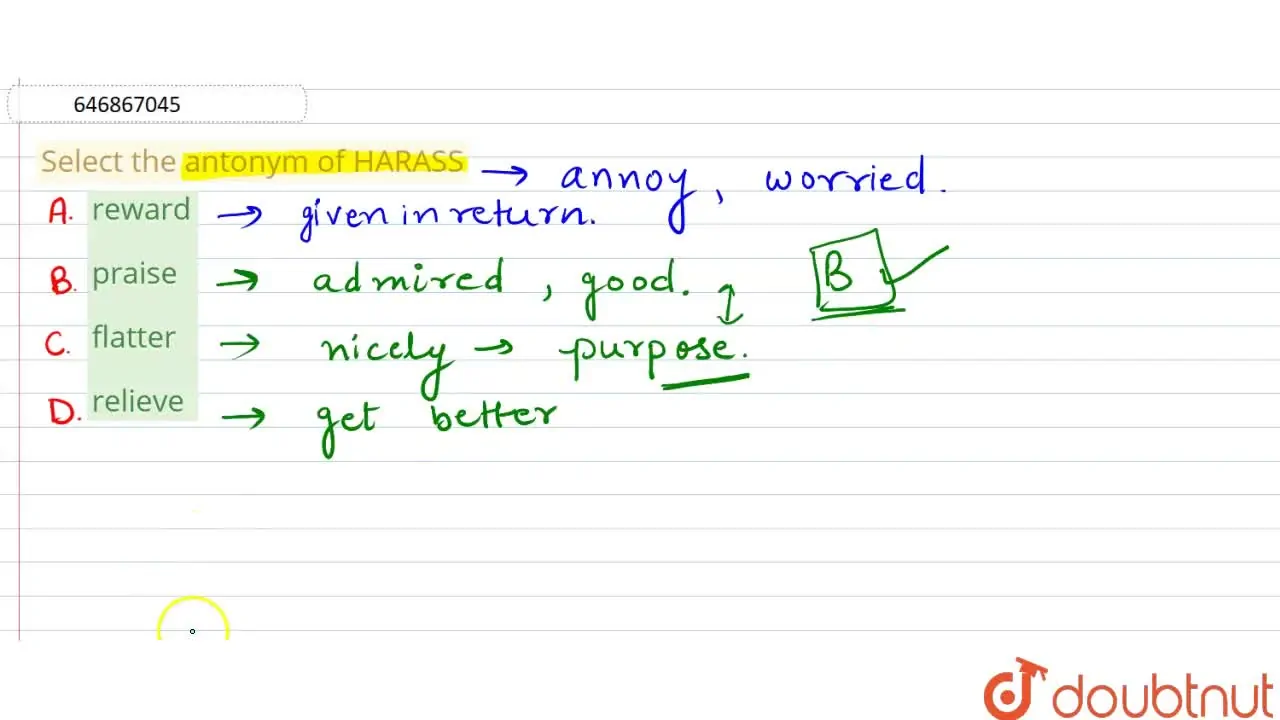 646867045
Select the antonym of HARASS → annoy, worried.
A. reward → given in return.
B. praise → admired, good. B ✓
C. flatter → nicely → purpose.
D. relieve → get better
doubtnut